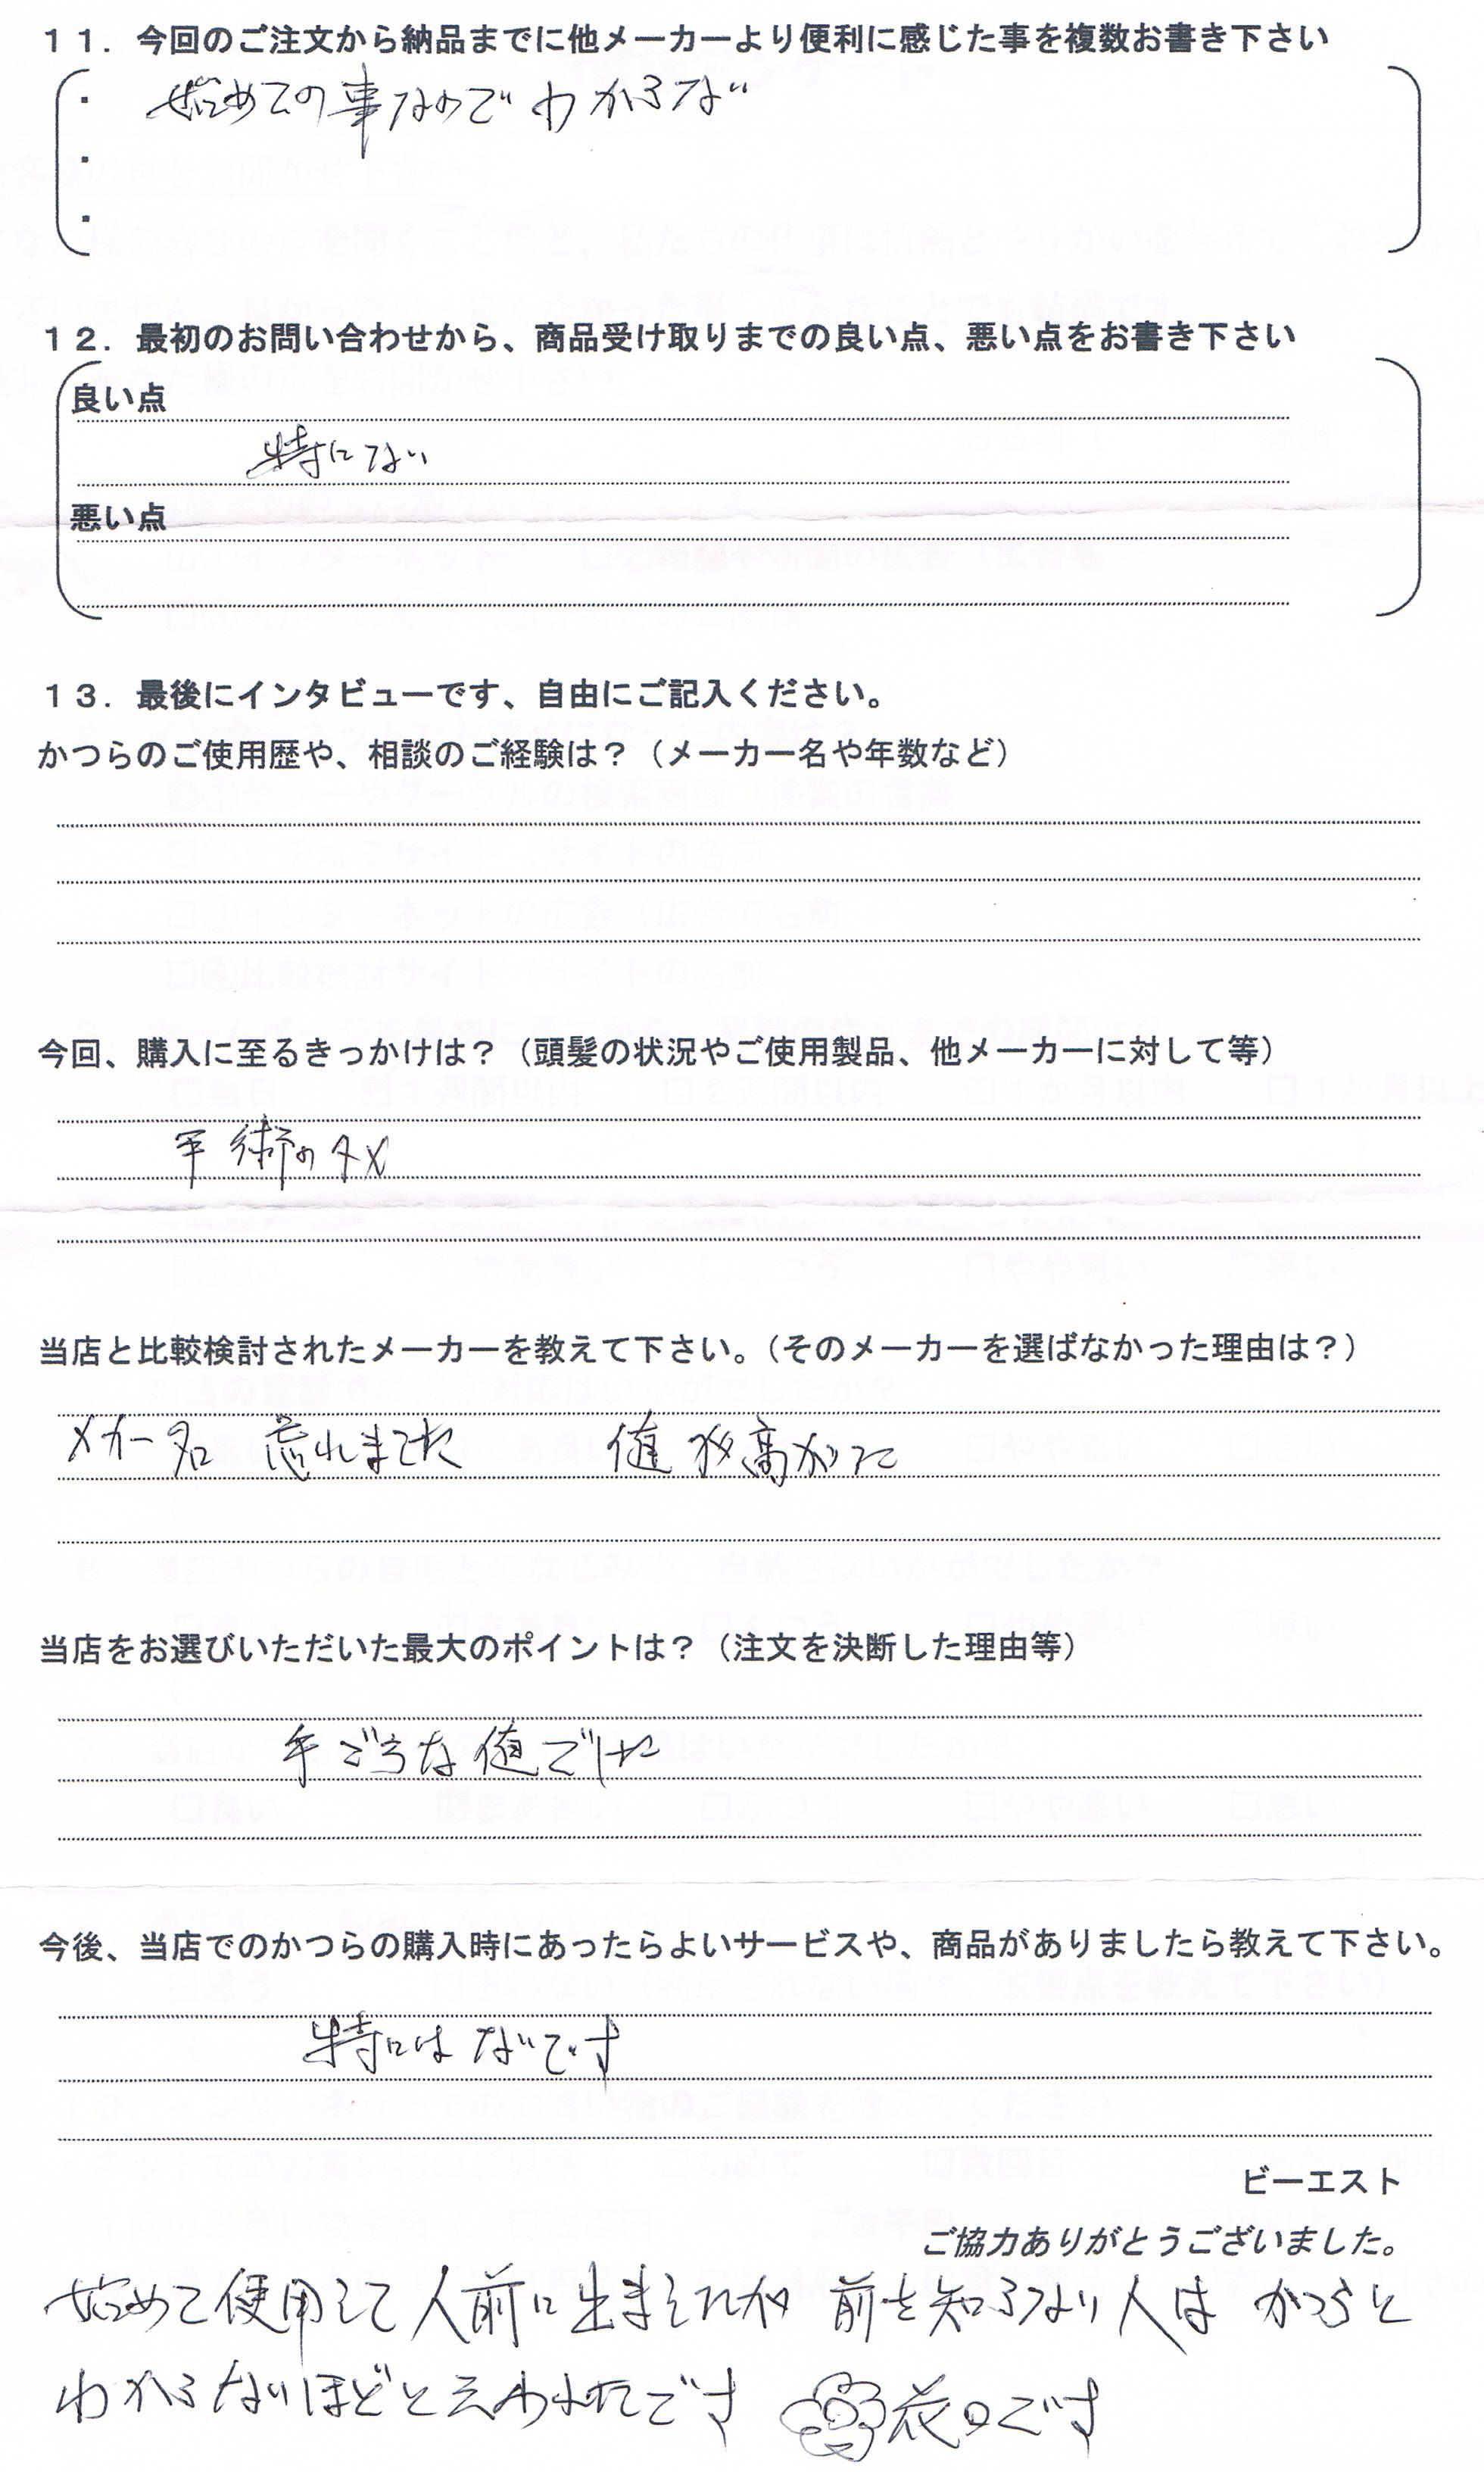 11．今回のご注文から納品までに他メーカーより便利に感じた事を複数お書き下さい
・ 始めての事なのでわからない
・
・
12．最初のお問い合わせから、商品受け取りまでの良い点、悪い点をお書き下さい
良い点
特にない
悪い点
13．最後にインタビューです、自由にご記入ください。
かつらのご使用歴や、相談のご経験は？（メーカー名や年数など）
今回、購入に至るきっかけは？（頭髪の状況やご使用製品、他メーカーに対して等）
手術のタメ
当店と比較検討されたメーカーを教えて下さい。（そのメーカーを選ばなかった理由は？）
メカー名 忘れました 値が高かった
当店をお選びいただいた最大のポイントは？（注文を決断した理由等）
手ごろな値でした
今後、当店でのかつらの購入時にあったらよいサービスや、商品がありましたら教えて下さい。
特にはないです
ビーエスト
ご協力ありがとうございました。
始めて使用して人前に出ましたが 前を知らない人は かつらと
わからないほどと云われたです 花です